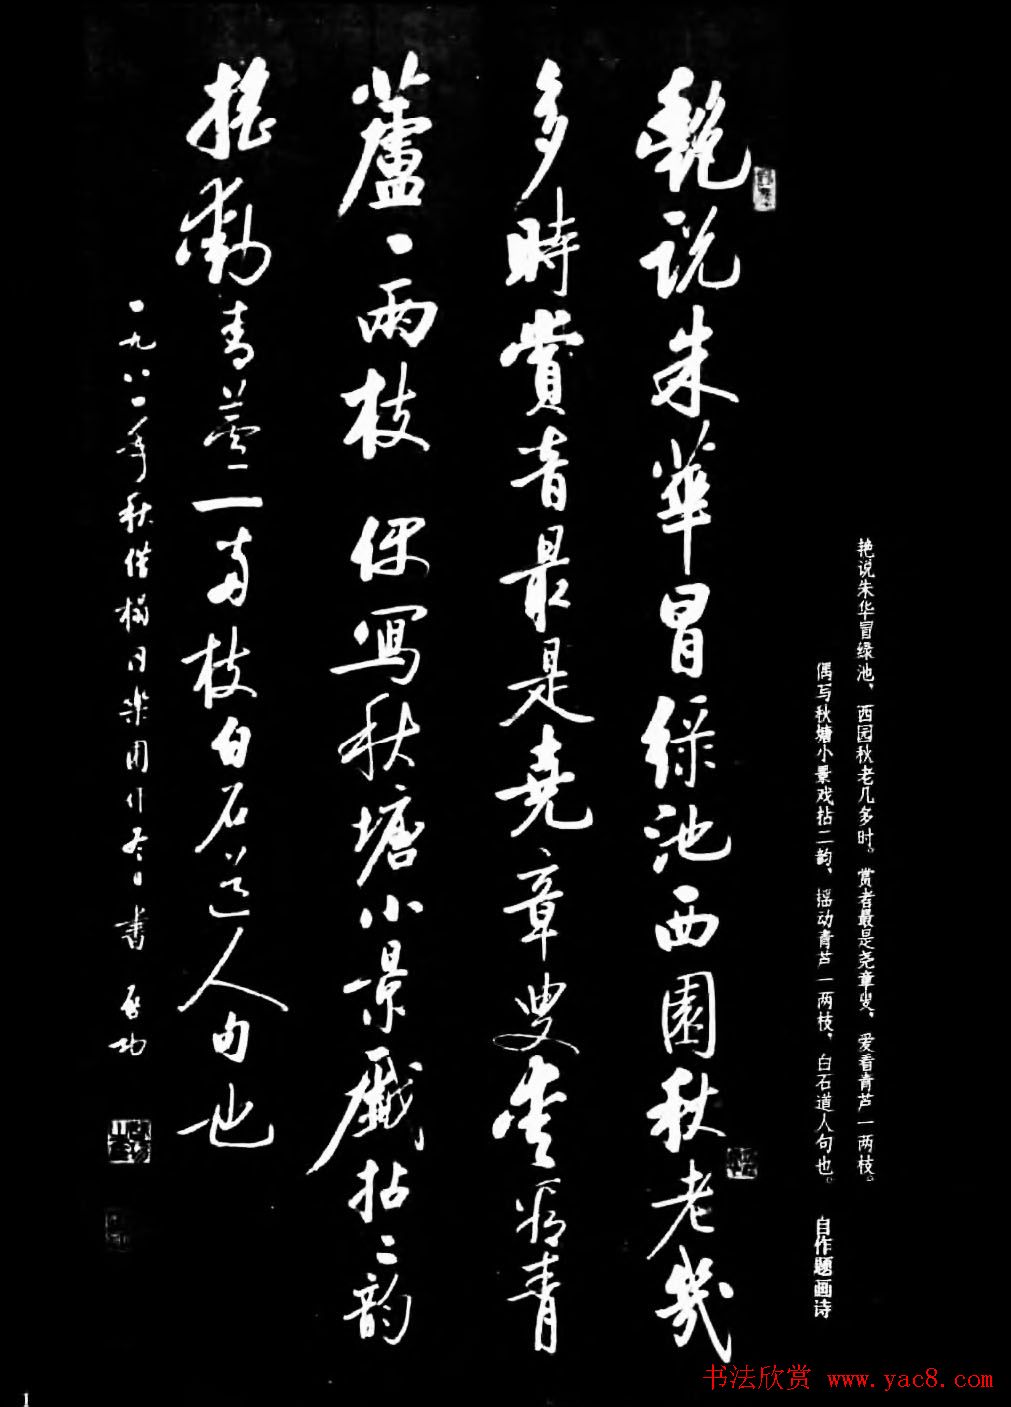 艳说朱华冒绿池、西园秋老几多时。赏者最是尧章叟、爱看青芦一两枝。
偶写秋塘小景戏拈二韵、摇动青芦一两枝，白石道人句也。 自作题画诗
艷说朱華冒緑池西園秋老幾
多時賞音最是堯章叟愛看青
蘆一兩枝 偶寫秋塘小景戲拈二韵
摇動青蘆一两枝白石道人句也
一九八一年秋借榻同樂園 日書 启功
1
书法欣赏 www.yac8.com